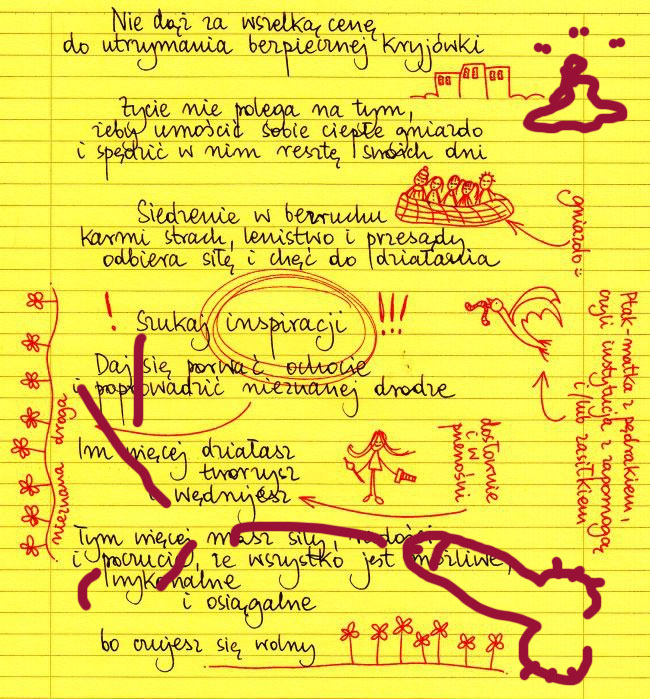 Nie dąż za wszelką cenę
do utrzymania bezpiecznej kryjówki
Życie nie polega na tym,
żeby umościć sobie ciepłe gniazdo
i spędzić w nim resztę swoich dni
Siedzenie w bezruchu
karmi strach, lenistwo i przesądy
odbiera siłę i chęć do działania
gniazdo :)
! Szukaj inspiracji !!!
Daj się porwać ochocie
i poprowadzić nieznanej drodze
Ptak-matka z pędrakiem,
czyli instytucja z zapomogą
i/lub zasiłkiem
nieznana droga
Im więcej działasz
tworzysz
i wędrujesz
dosłownie
i w
przenośni
Tym więcej masz siły, radości
i poczucia, że wszystko jest możliwe,
wykonalne
i osiągalne
bo czujesz się wolny